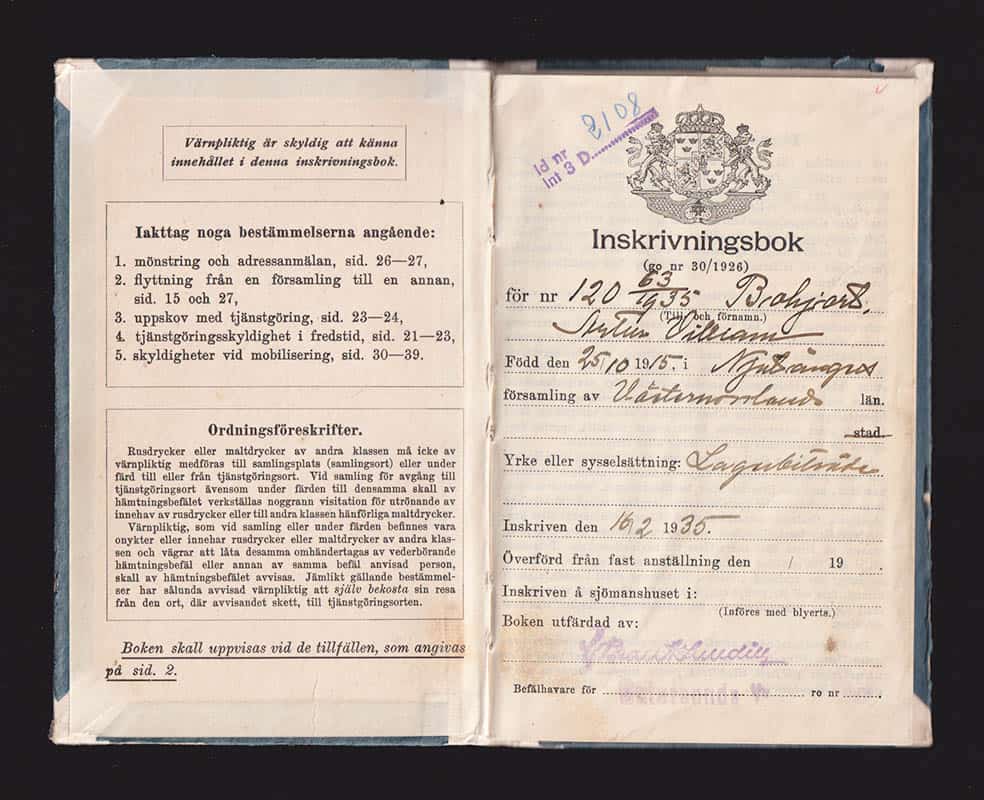 Värnpliktig är skyldig att känna
innehållet i denna inskrivningsbok.
Iakttag noga bestämmelserna angående:
1. mönstring och adressanmälan, sid. 26—27,
2. flyttning från en församling till en annan,
sid. 15 och 27,
3. uppskov med tjänstgöring, sid. 23—24,
4. tjänstgöringsskyldighet i fredstid, sid. 21—23,
5. skyldigheter vid mobilisering, sid. 30—39.
Ordningsföreskrifter.
Rusdrycker eller maltdrycker av andra klassen må icke av
värnpliktig medföras till samlingsplats (samlingsort) eller under
färd till eller från tjänstgöringsort. Vid samling för avgång till
tjänstgöringsort ävensom under färden till densamma skall av
hämtningsbefälet verkställas noggrann visitation för utrönande av
innehav av rusdrycker eller till andra klassen hänförliga maltdrycker.
Värnpliktig, som vid samling eller under färden befinnes vara
onykter eller innehar rusdrycker eller maltdrycker av andra klas-
sen och vägrar att låta desamma omhändertagas av vederbörande
hämtningsbefäl eller annan av samma befäl anvisad person,
skall av hämtningsbefälet avvisas. Jämlikt gällande bestämmel-
ser har sålunda avvisad värnpliktig att själv bekosta sin resa
från den ort, där avvisandet skett, till tjänstgöringsorten.
Boken skall uppvisas vid de tillfällen, som angivas
på sid. 2.
Id nr
Int 3 D 2108
Inskrivningsbok
(go nr 30/1926)
för nr 120 63/1935
(Till- och förnamn.)
Villiam
Född den 25/10 1915, i
församling av Västernorrlands län.
stad.
Yrke eller sysselsättning: Lagerbiträde
Inskriven den 16/2 1935.
Överförd från fast anställning den / 19 .
Inskriven å sjömanshuset i:
(Införes med blyerts.)
Boken utfärdad av:
Befälhavare för ro nr